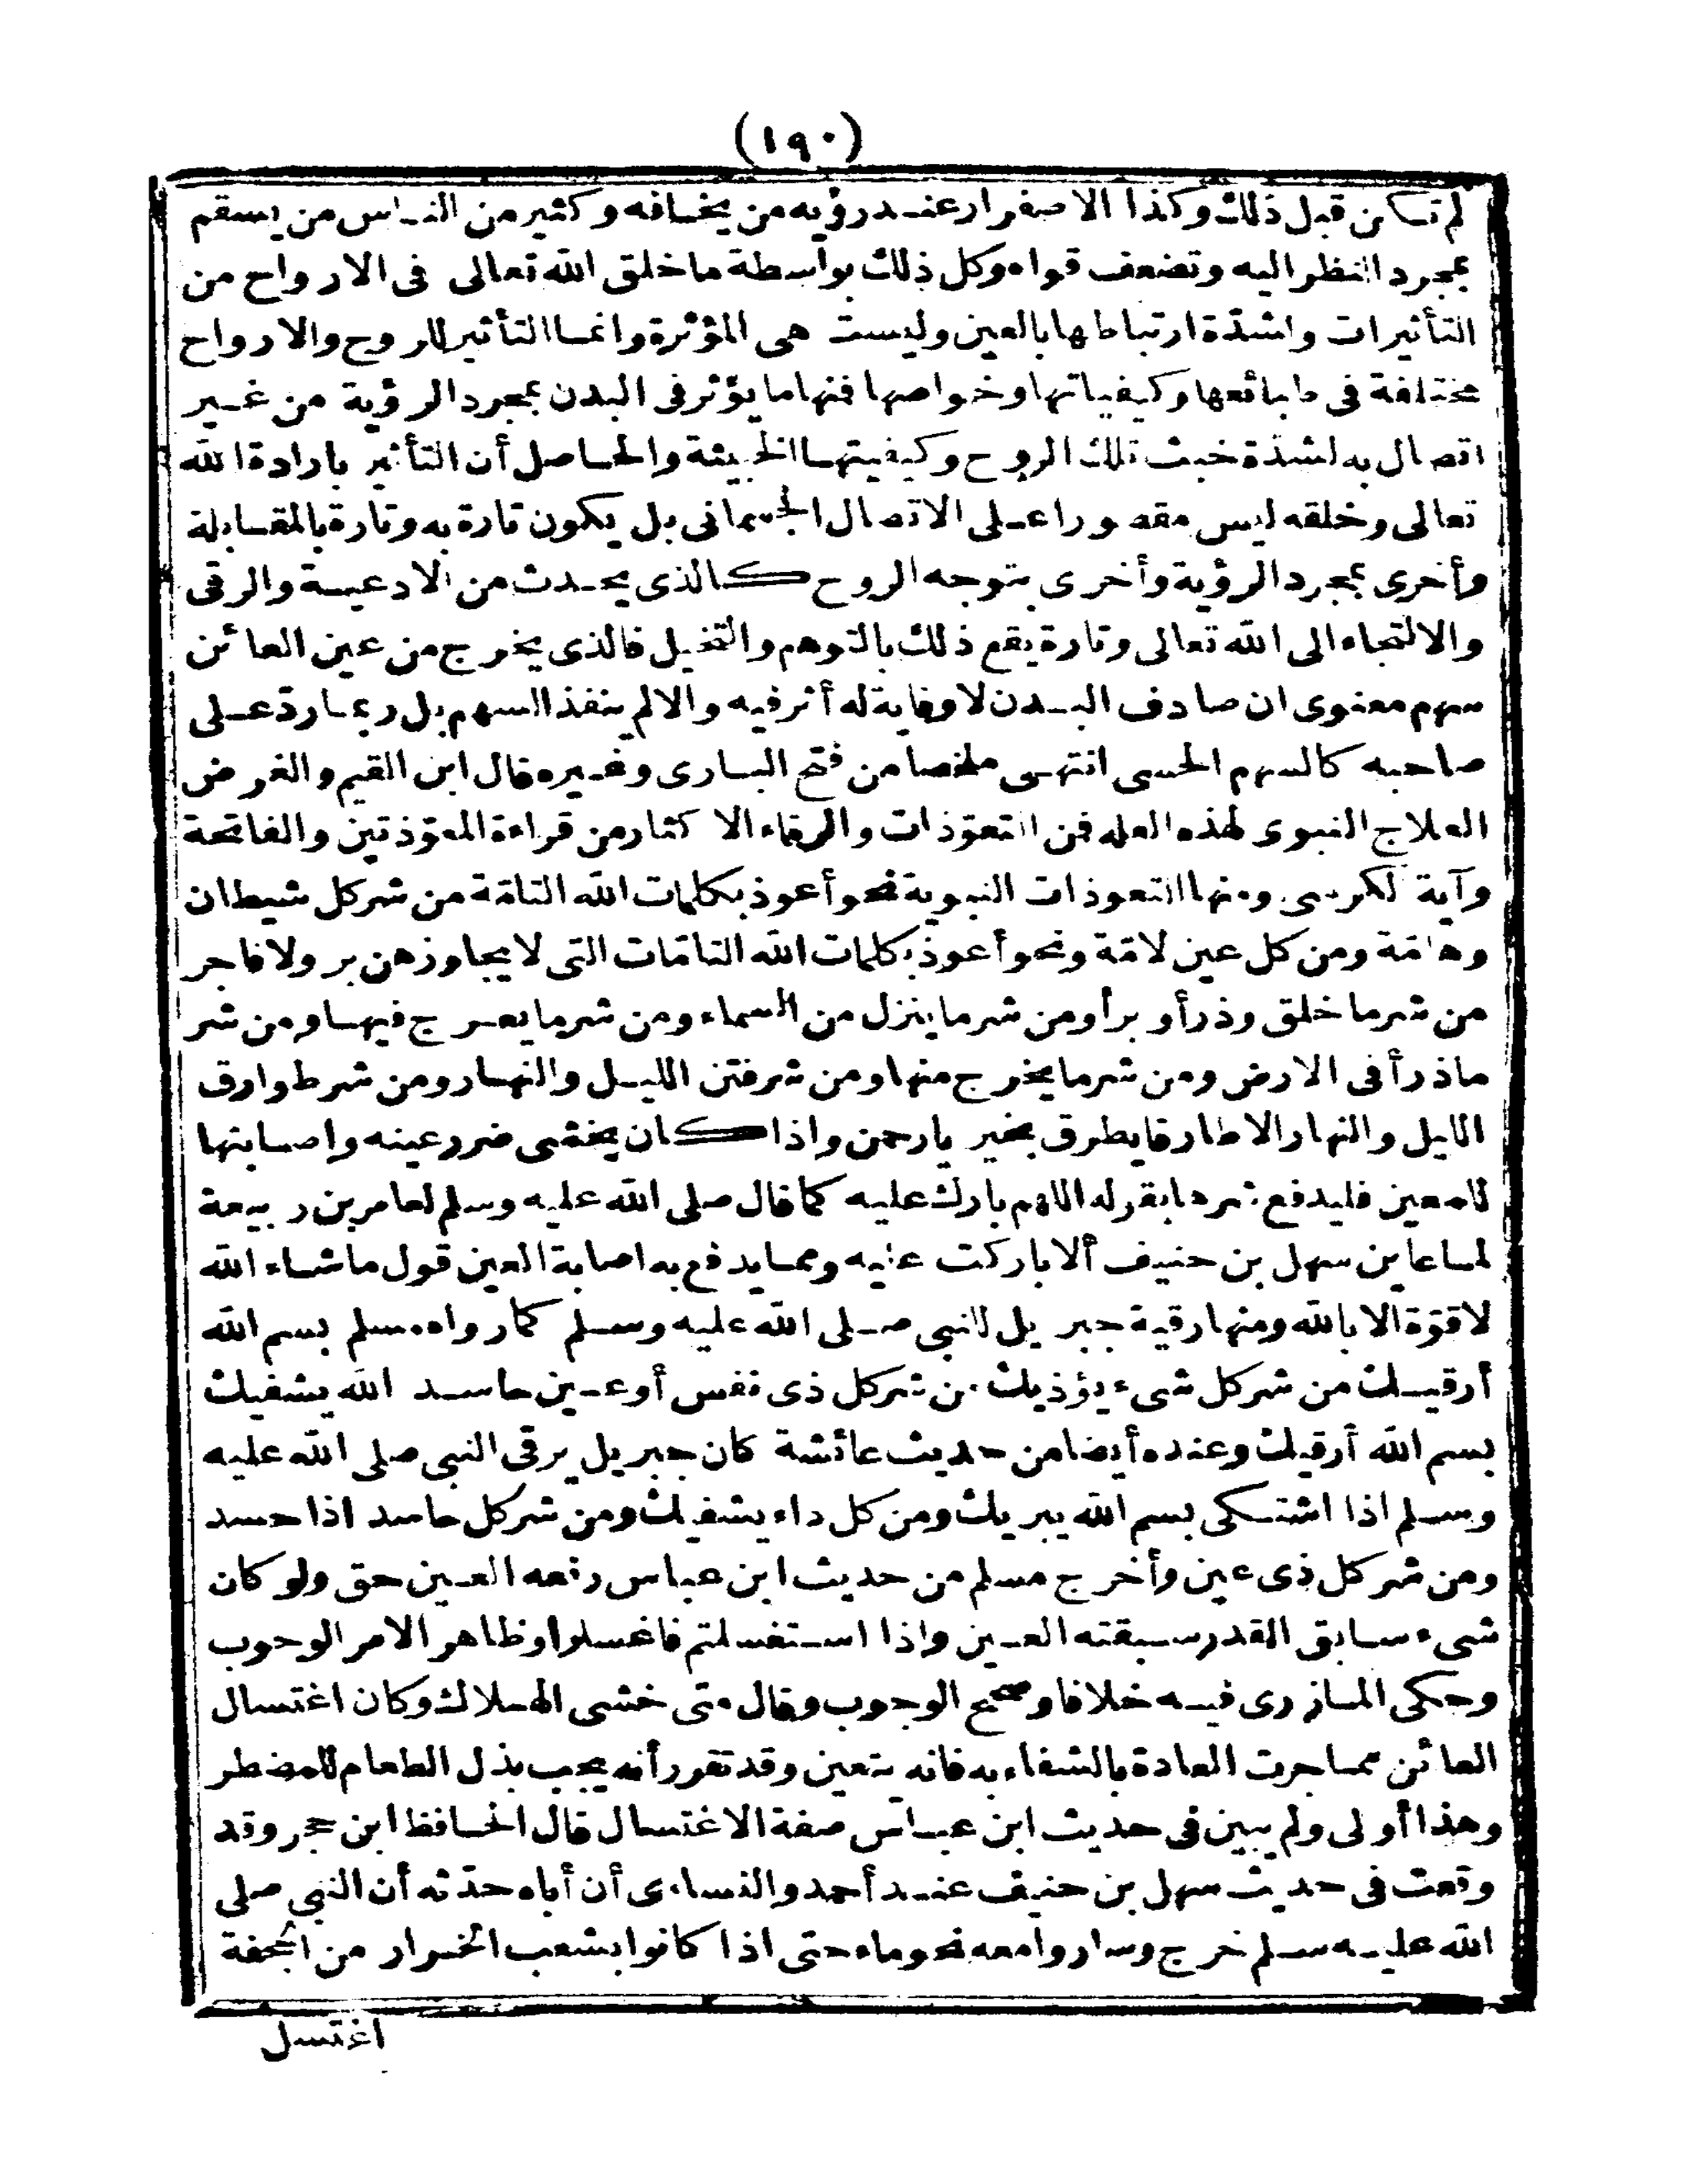 (١٩٠)
لم تكن قبل ذلك وكذا الاصفرار عند رؤيه من يخافه وكثير من الناس من يسقم
بمجرد النظر اليه وتضعف قواه وكل ذلك بواسطة ما خلق الله تعالى فى الارواح من
التأثيرات واشدّة ارتباطها بالعين وليست هى المؤثرة وانما التأثير للروح والارواح
مختلفة فى طبائعها وكيفياتها وخواصها فمنها ما يؤثر فى البدن بمجرد الرؤية من غير
اتصال به لشدّة خبث تلك الروح وكيفيتها الخبيثة والحاصل أن التأثير بارادة الله
تعالى وخلقه ليس مقصورا على الاتصال الجسمانى بل يكون تارة به وتارة بالمقابلة
وأخرى بمجرد الرؤية وأخرى بتوجه الروح كالذى يحدث من الادعية والرقى
والالتجاء الى الله تعالى وتارة يقع ذلك بالتوهم والتخيل فالذى يخرج من عين العائن
سهم معنوى ان صادف البدن لا وقاية له أثر فيه والا لم ينفذ السهم بل ربما ردّ على
صاحبه كالسهم الحسى انتهى ملخصا من فتح البارى وغيره قال ابن القيم والغرض
العلاج النبوى لهذه العله فمن التعوّذات والرقاء الا كثار من قراءة المعوّذتين والفاتحة
وآية لكرسى ومنها التعوذات النبوية نحو أعوذ بكلمات الله التامّة من شر كل شيطان
وهامّة ومن كل عين لامّة ونحو أعوذ بكلمات الله التامّات التى لا يجاوزهن بر ولا فاجر
من شر ما خلق وذرأ وبرأ ومن شر ما ينزل من السماء ومن شر ما يعرج فيها ومن شر
ما ذرأ فى الارض ومن شر ما يخرج منها ومن شر فتن الليل والنهار ومن شر طوارق
الليل والنهار الا طارقا يطرق بخير يا رحمن واذا كان يخشى ضرر عينه واصابتها
للمعين فليدفع شرها بقوله اللهم بارك عليه كما قال صلى الله عليه وسلم لعامر بن ربيعة
لما عاين سهل بن حنيف ألا باركت عليه ومما يدفع به اصابة العين قول ما شاء الله
لا قوّة الا بالله ومنها رقية جبريل للنبى صلى الله عليه وسلم كما رواه مسلم بسم الله
أرقيك من شر كل شىء يؤذيك من شر كل ذى نفس أو عين حاسد الله يشفيك
بسم الله أرقيك وعنده أيضا من حديث عائشة كان جبريل يرقى النبى صلى الله عليه
وسلم اذا اشتكى بسم الله يبريك ومن كل داء يشفيك ومن شر كل حاسد اذا حسد
ومن شر كل ذى عين وأخرج مسلم من حديث ابن عباس رفعه العين حق ولو كان
شىء سابق القدر سبقته العين واذا استغسلتم فاغسلوا وظاهر الامر الوجوب
وحكى المازرى فيه خلافا وصحح الوجوب وقال متى خشى الهلاك وكان اغتسال
العائن مما جرت العادة بالشفاء به فانه يتعين وقد تقرر أنه يجب بذل الطعام للمضطر
وهذا أولى ولم يبين فى حديث ابن عباس صفة الاغتسال قال الحافظ ابن حجر وقد
وقعت فى حديث سهل بن حنيف عند أحمد والنساءى أن أباه حدّثه أن النبى صلى
الله عليه سلم خرج وساروا معه نحو ماء حتى اذا كانوا بشعب الخرار من الجحفة
اغتسل